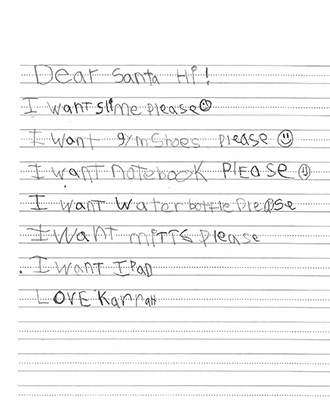 Dear Santa Hi!
I want slime please☺
I want gymshoes please ☺
I want notebook PlEASE ☺
I want water bottle Please
I Want mitts please
I WanT IPaD
LOVE Karrah